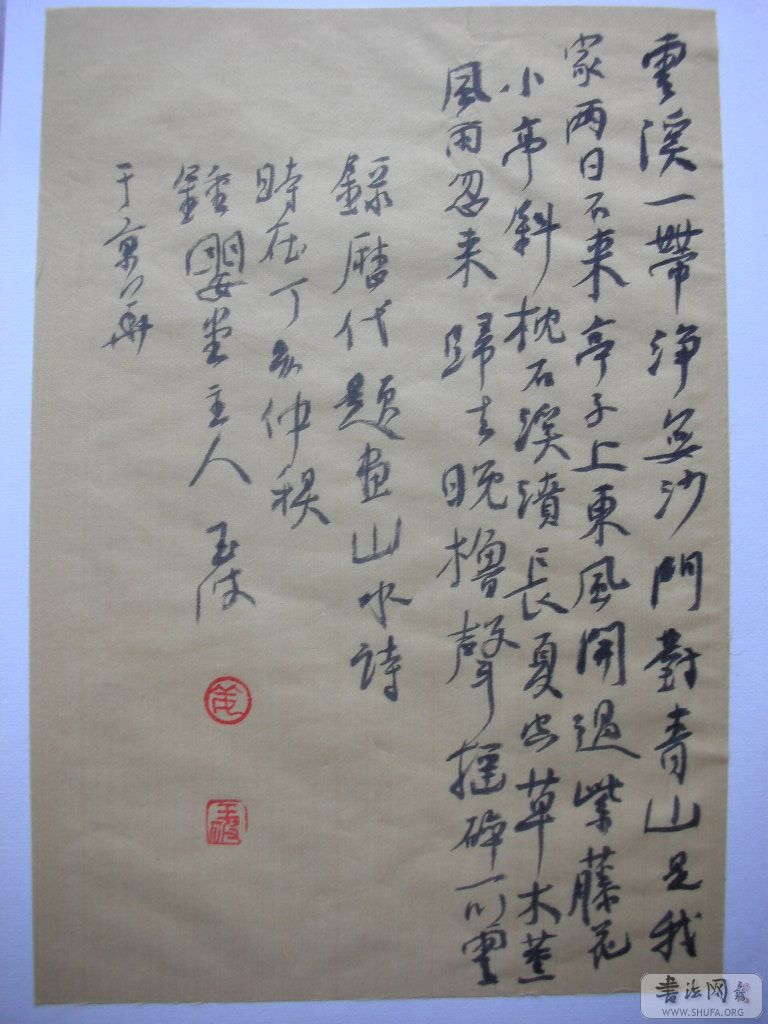 雲溪一帶淨無沙門對青山是我
家兩日不來亭子上東風開過紫藤花
小亭斜枕石溪濆長夏出草木薰
風雨忽来歸去晚櫓聲摇碎一川雲
錄歷代題畫山水詩
時在丁亥仲秋
鍾嬰堂主人 玉波
于京華
書法网
WWW.SHUFA.ORG